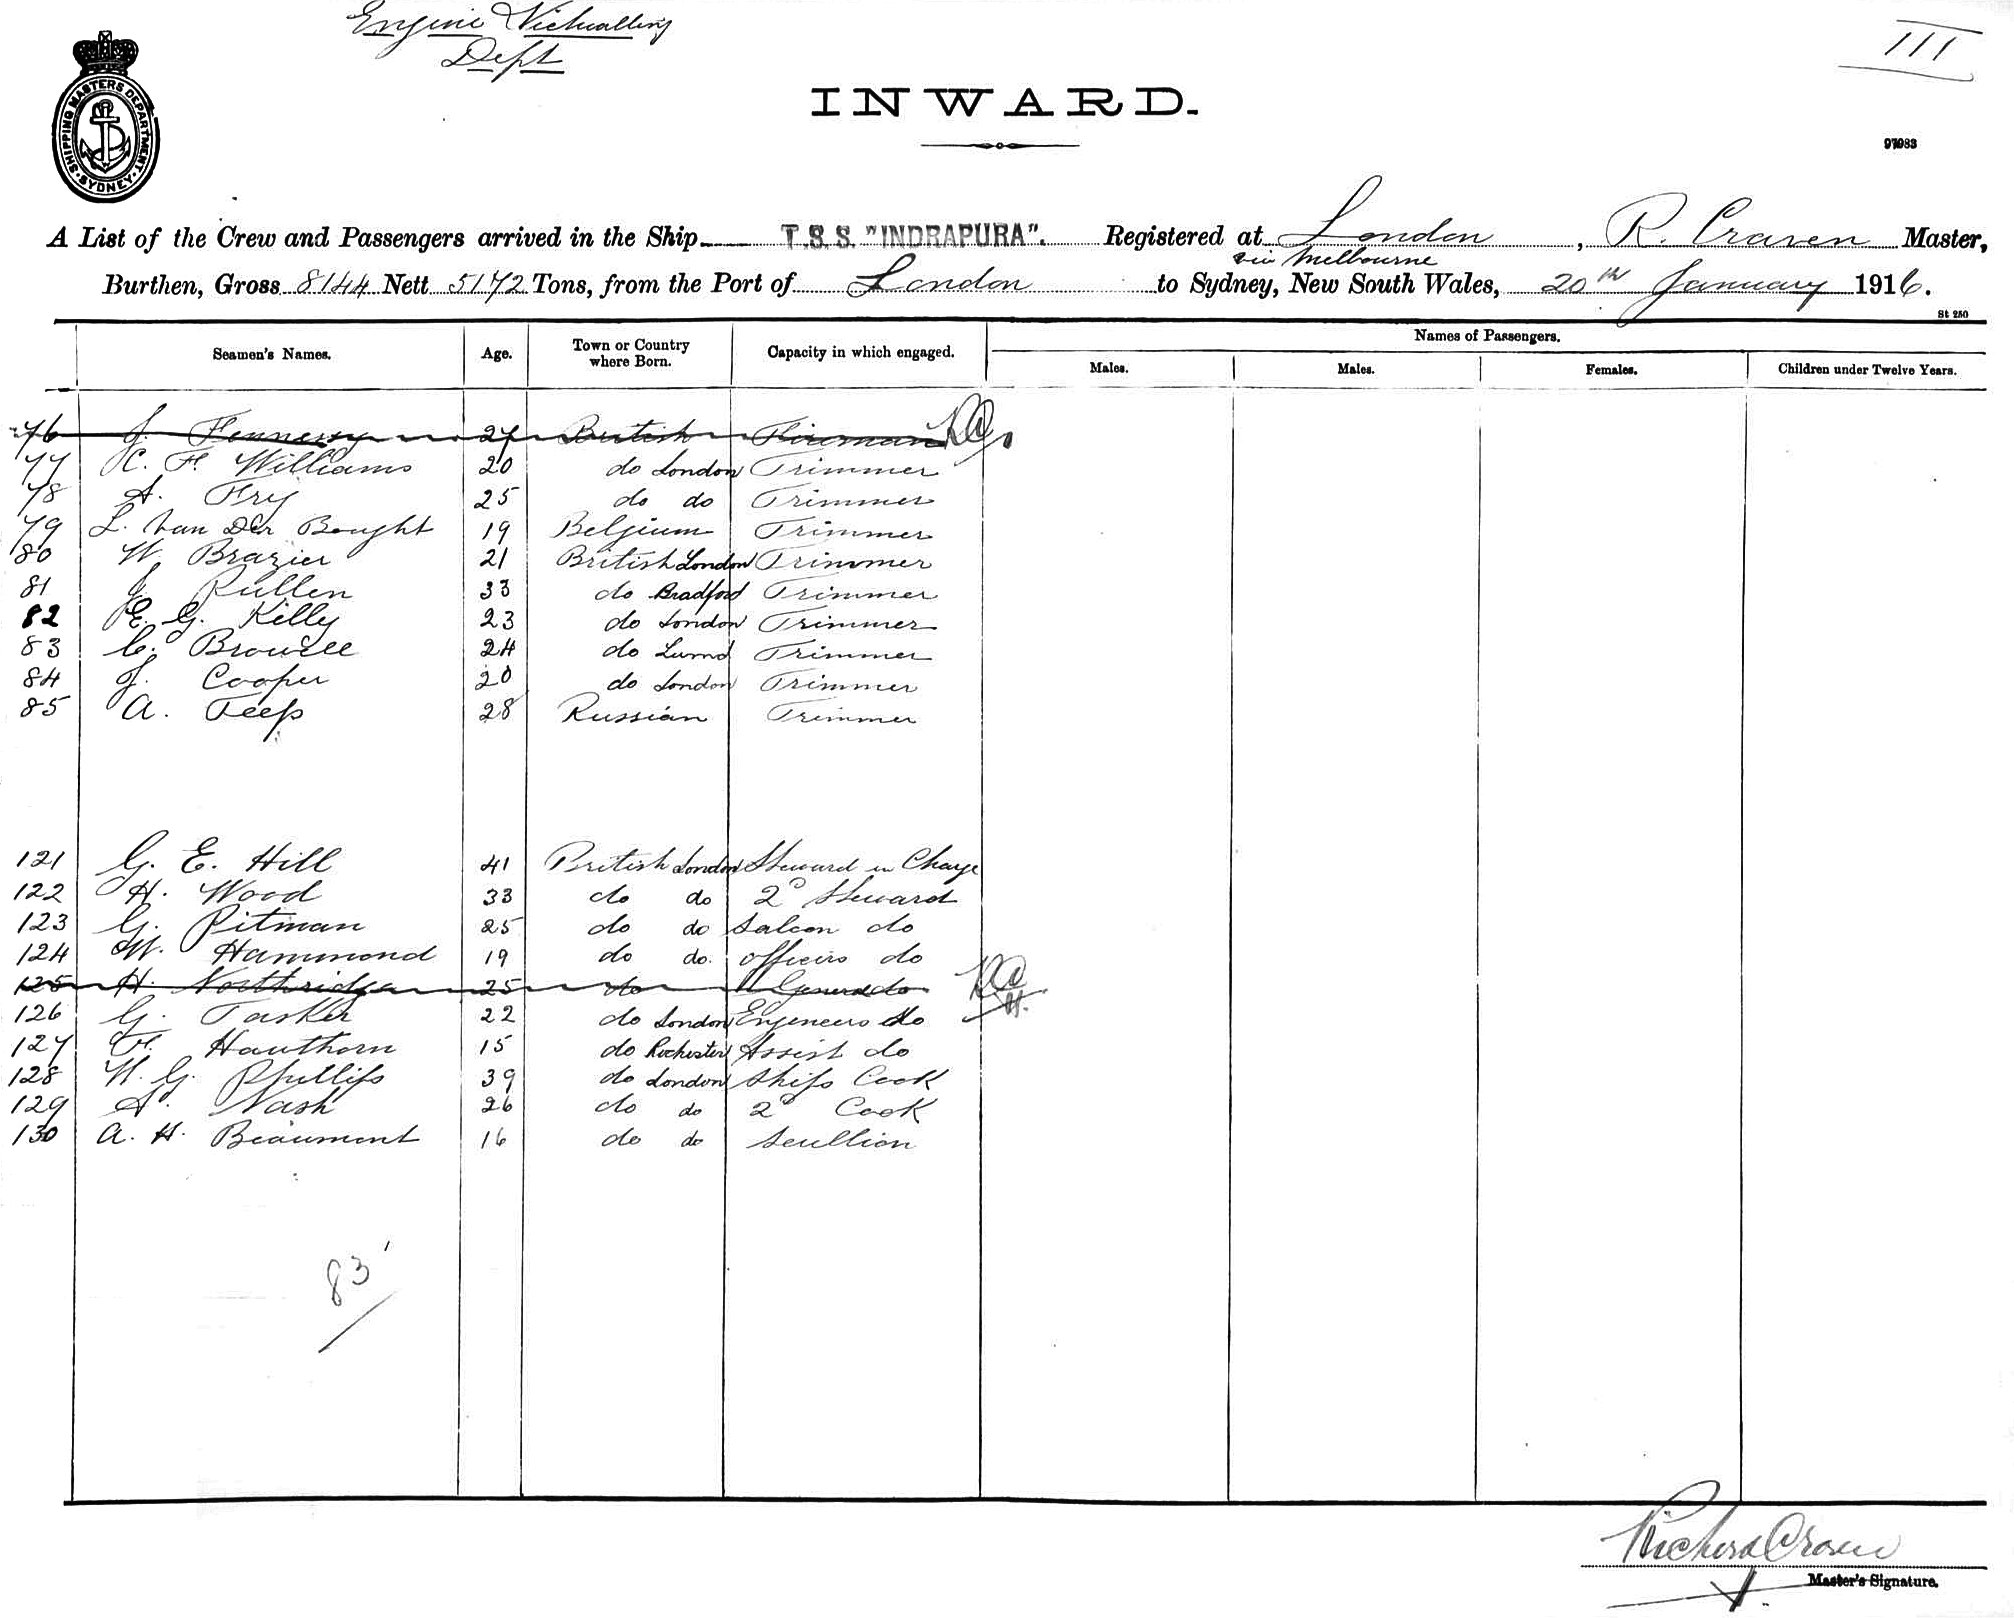 Engine Victualling
Dept
III
SHIPPING MASTERS DEPARTMENT · SYDNEY ·
INWARD.
97083
A List of the Crew and Passengers arrived in the Ship T.S.S. "INDRAPURA". Registered at London, R. Craven Master,
via Melbourne
Burthen, Gross 8144 Nett 5172 Tons, from the Port of London to Sydney, New South Wales, 20th January 1916.
St 250
Seamen's Names. Age. Town or Country where Born. Capacity in which engaged. Names of Passengers.
Males. Males. Females. Children under Twelve Years.
76 J. Fennessy 27 British Fireman
77 C. F. Williams 20 do London Trimmer
78 A. Fry 25 do do Trimmer
79 L. Van Der Bought 19 Belgium Trimmer
80 W. Brazier 21 British London Trimmer
81 J Pullen 33 do Bradford Trimmer
82 E. G. Kelly 23 do London Trimmer
83 C. 24 do Trimmer
84 J. Cooper 20 do London Trimmer
85 A. 28 Russian Trimmer
121 G. E. Hill 41 British London Steward in Charge
122 H. Wood 33 do do 2d Steward
123 G. Pitman 25 do do Saloon do
124 W. Hammond 19 do do. officers do
125 H. Northridge 25 do General do
126 G. Tasker 22 do London Engeneers do
127 F. Hawthorn 15 do Rochester Assist do
128 W. G. Phillips 39 do London Ships Cook
129 A. Nash 26 do do 2d Cook
130 A. H. Beaumont 16 do do Scullion
83
Richard Craven
Master's Signature.